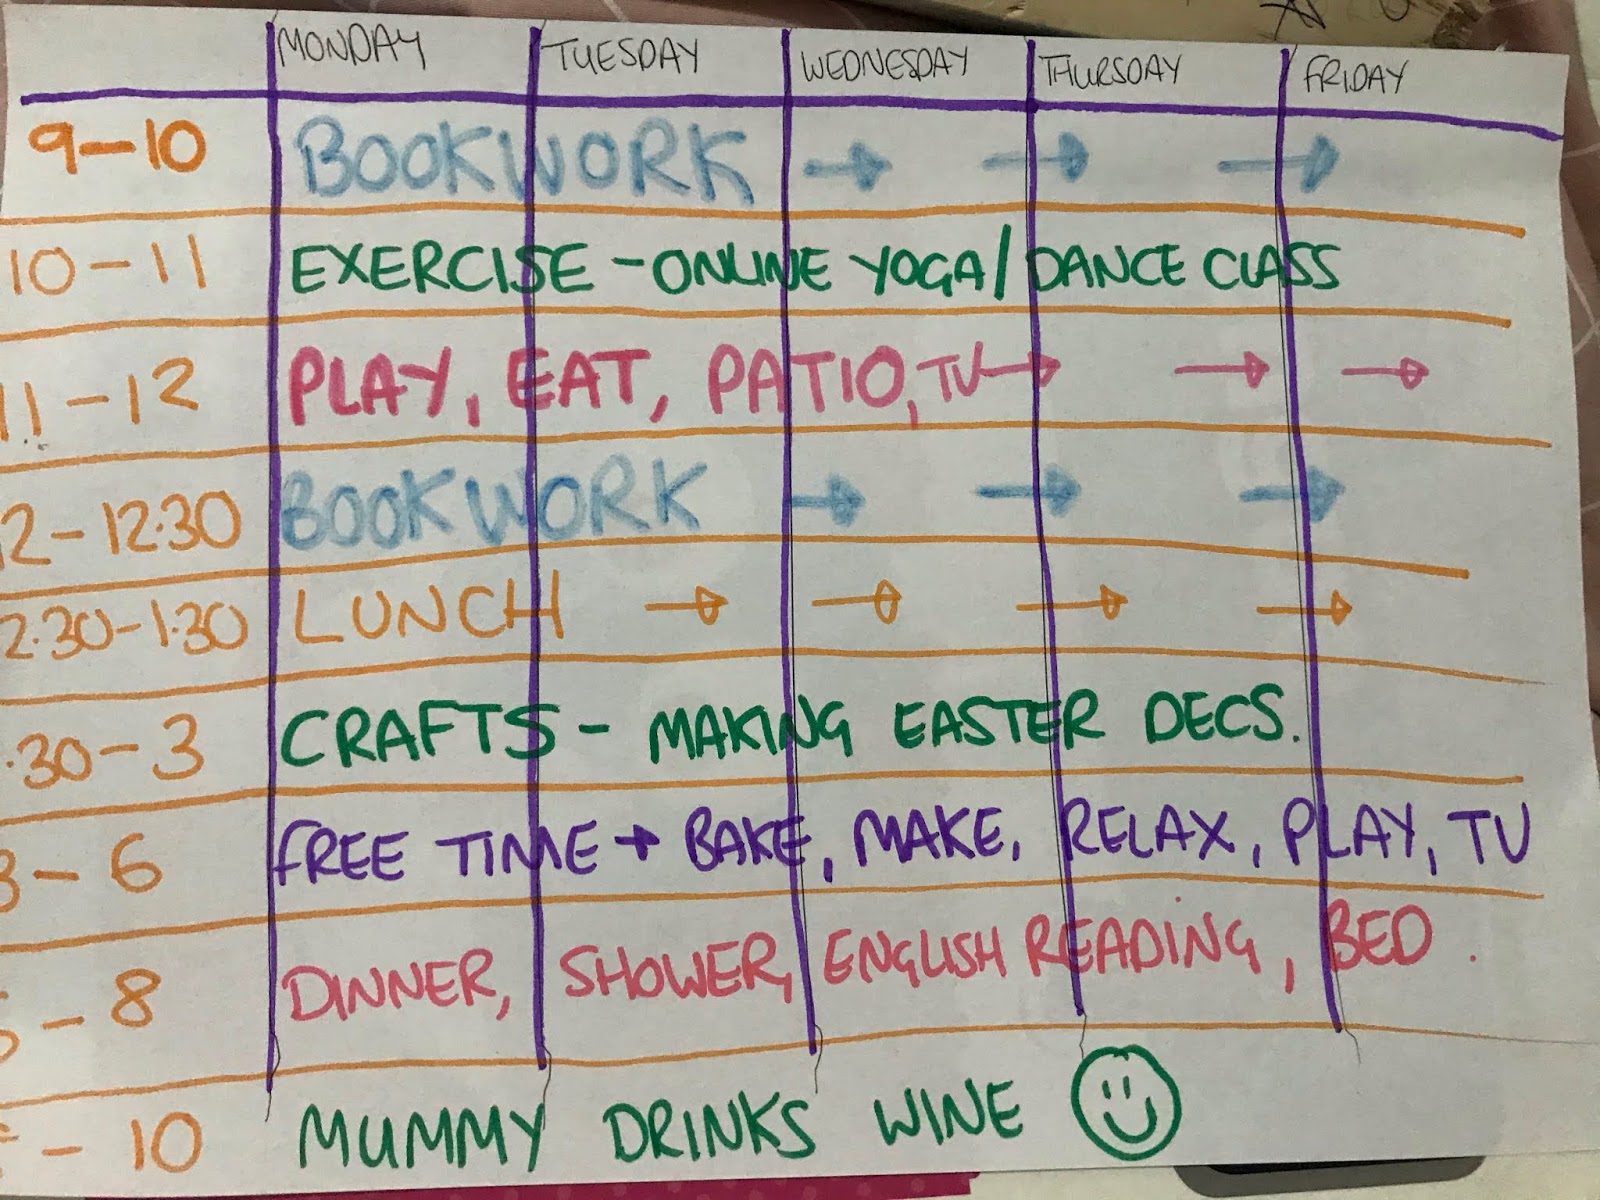 MONDAY TUESDAY WEDNESDAY THURSDAY FRIDAY
9-10 BOOKWORK → → →
10-11 EXERCISE - ONLINE YOGA/DANCE CLASS
11-12 PLAY, EAT, PATIO, TV → → →
2-12.30 BOOKWORK → → →
2.30-1.30 LUNCH → → → →
.30-3 CRAFTS - MAKING EASTER DECS.
3-6 FREE TIME → BAKE, MAKE, RELAX, PLAY, TV
-8 DINNER, SHOWER, ENGLISH READING, BED.
-10 MUMMY DRINKS WINE